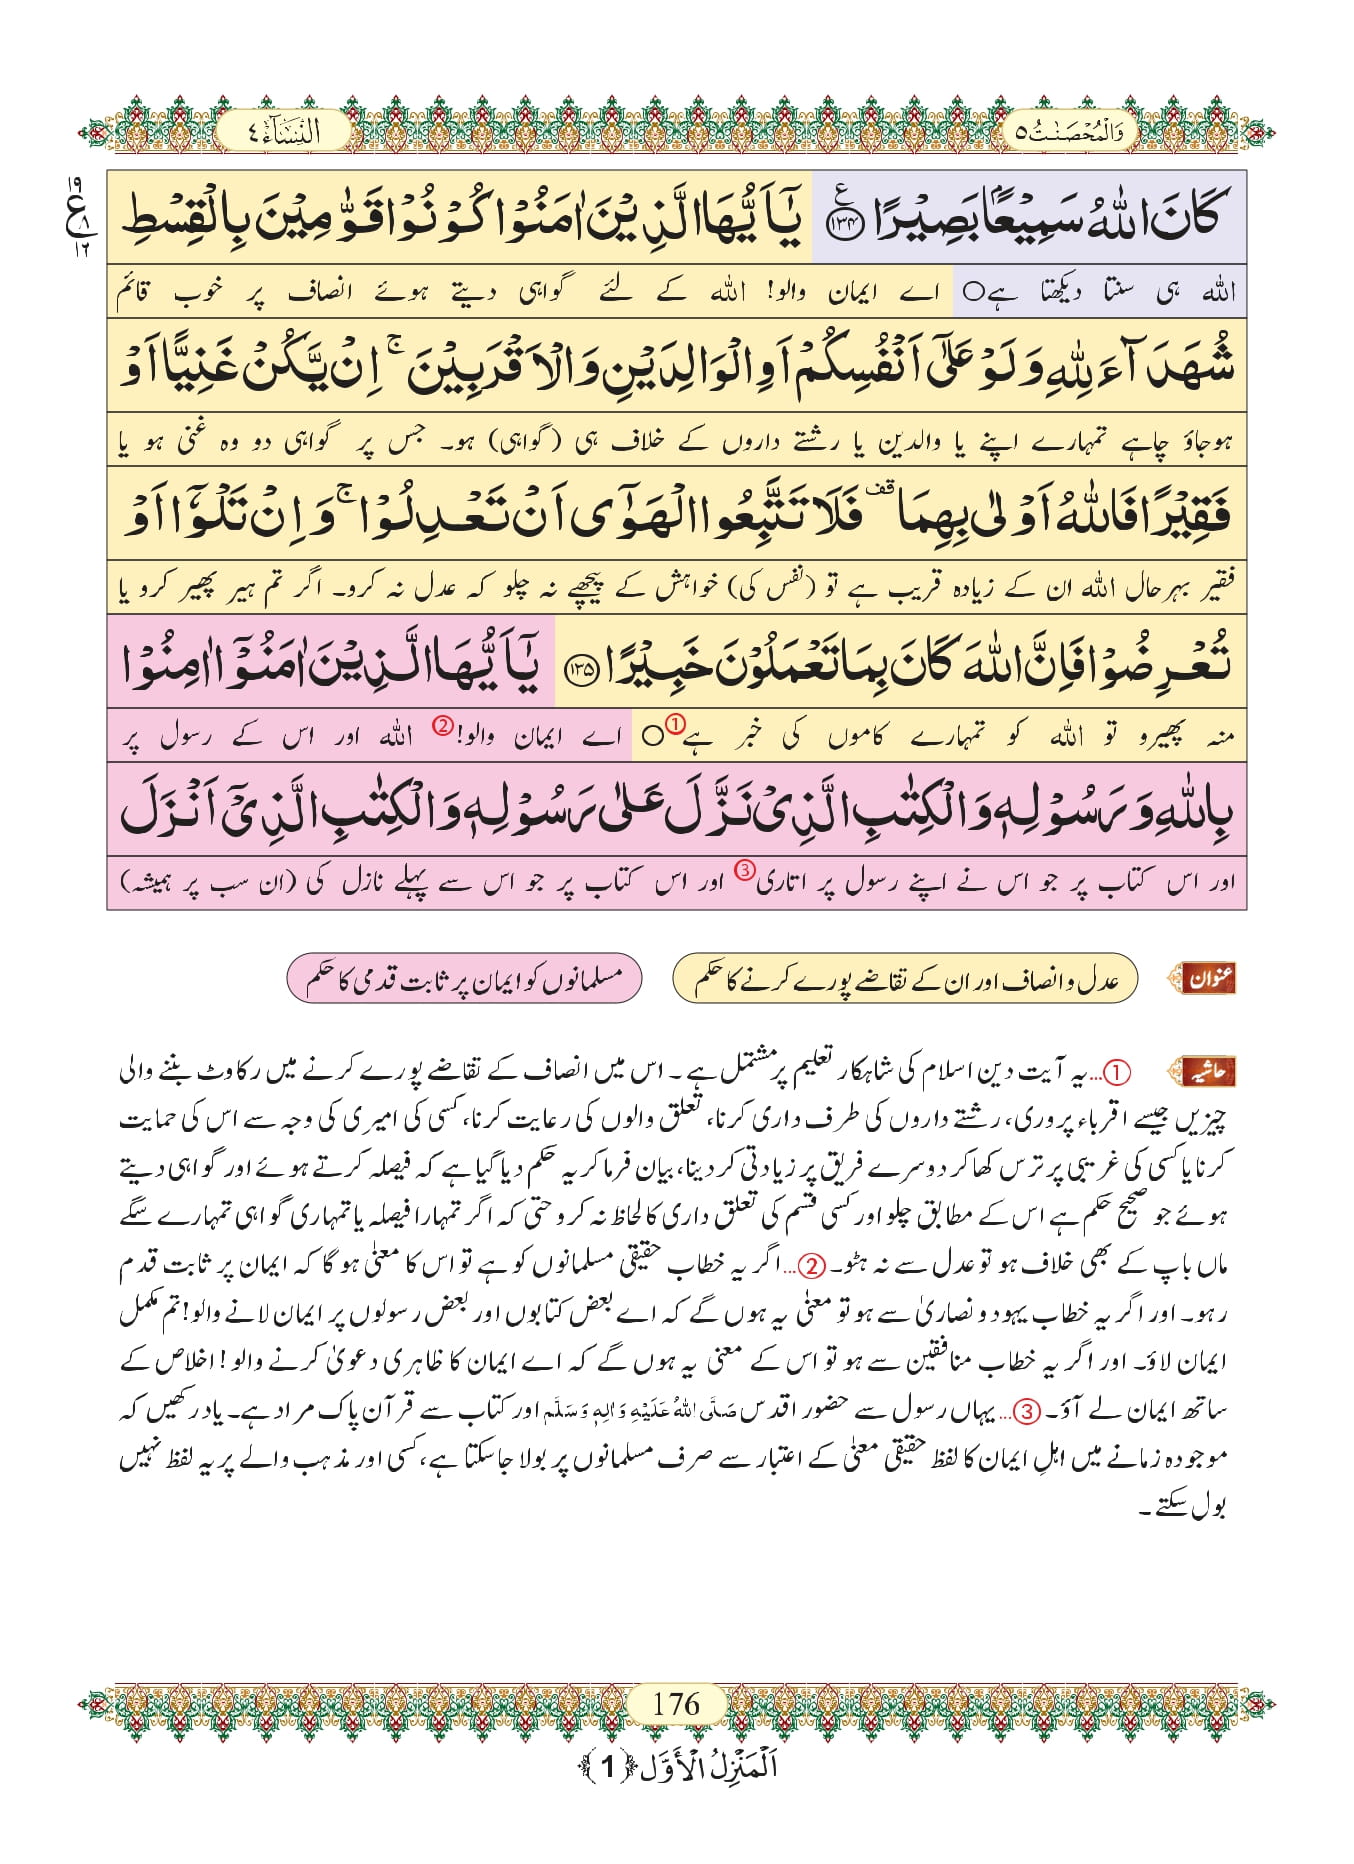 وَالْمُحْصَنٰتُ ٥
النِّسَآء ٤
١٩
ع
٨
١٢
كَانَ اللّٰهُ سَمِیْعًۢا بَصِیْرًا۠ ﴿۱۳۴﴾ یٰۤاَیُّهَا الَّذِیْنَ اٰمَنُوْا كُوْنُوْا قَوّٰمِیْنَ بِالْقِسْطِ
اللہ ہی سنتا دیکھتا ہے○ اے ایمان والو! اللہ کے لئے گواہی دیتے ہوئے انصاف پر خوب قائم
شُهَدَآءَ لِلّٰهِ وَ لَوْ عَلٰۤى اَنْفُسِكُمْ اَوِ الْوَالِدَیْنِ وَ الْاَقْرَبِیْنَ ۚ اِنْ یَّكُنْ غَنِیًّا اَوْ
ہوجاؤ چاہے تمہارے اپنے یا والدین یا رشتے داروں کے خلاف ہی (گواہی) ہو۔ جس پر گواہی دو وہ غنی ہو یا
فَقِیْرًا فَاللّٰهُ اَوْلٰى بِهِمَا ۫ فَلَا تَتَّبِعُوا الْهَوٰۤى اَنْ تَعْدِلُوْا ۚ وَ اِنْ تَلْوٗۤا اَوْ
فقیر بہرحال اللہ ان کے زیادہ قریب ہے تو (نفس کی) خواہش کے پیچھے نہ چلو کہ عدل نہ کرو۔ اگر تم ہیر پھیر کرو یا
تُعْرِضُوْا فَاِنَّ اللّٰهَ كَانَ بِمَا تَعْمَلُوْنَ خَبِیْرًا ﴿۱۳۵﴾ یٰۤاَیُّهَا الَّذِیْنَ اٰمَنُوْۤا اٰمِنُوْا
منہ پھیرو تو اللہ کو تمہارے کاموں کی خبر ہے① ○ اے ایمان والو!② اللہ اور اس کے رسول پر
بِاللّٰهِ وَ رَسُوْلِهٖ وَ الْكِتٰبِ الَّذِیْ نَزَّلَ عَلٰى رَسُوْلِهٖ وَ الْكِتٰبِ الَّذِیْۤ اَنْزَلَ
اور اس کتاب پر جو اس نے اپنے رسول پر اتاری③ اور اس کتاب پر جو اس سے پہلے نازل کی (ان سب پر ہمیشہ)
عنوان عدل و انصاف اور ان کے تقاضے پورے کرنے کا حکم مسلمانوں کو ایمان پر ثابت قدمی کا حکم
حاشیہ ①...یہ آیت دین اسلام کی شاہکار تعلیم پر مشتمل ہے۔ اس میں انصاف کے تقاضے پورے کرنے میں رکاوٹ بننے والی
چیزیں جیسے اقرباء پروری، رشتے داروں کی طرف داری کرنا، تعلق والوں کی رعایت کرنا، کسی کی امیری کی وجہ سے اس کی حمایت
کرنا یا کسی کی غریبی پر ترس کھا کر دوسرے فریق پر زیادتی کر دینا، بیان فرما کر یہ حکم دیا گیا ہے کہ فیصلہ کرتے ہوئے اور گواہی دیتے
ہوئے جو صحیح حکم ہے اس کے مطابق چلو اور کسی قسم کی تعلق داری کا لحاظ نہ کرو حتی کہ اگر تمہارا فیصلہ یا تمہاری گواہی تمہارے سگے
ماں باپ کے بھی خلاف ہو تو عدل سے نہ ہٹو۔ ②...اگر یہ خطاب حقیقی مسلمانوں کو ہے تو اس کا معنٰی ہو گا کہ ایمان پر ثابت قدم
رہو۔ اور اگر یہ خطاب یہود و نصاریٰ سے ہو تو معنٰی یہ ہوں گے کہ اے بعض کتابوں اور بعض رسولوں پر ایمان لانے والو! تم مکمل
ایمان لاؤ۔ اور اگر یہ خطاب منافقین سے ہو تو اس کے معنی یہ ہوں گے کہ اے ایمان کا ظاہری دعویٰ کرنے والو! اخلاص کے
ساتھ ایمان لے آؤ۔ ③...یہاں رسول سے حضور اقدس صَلَّى اللهُ عَلَيْهِ وَاٰلِهٖ وَسَلَّم اور کتاب سے قرآن پاک مراد ہے۔ یاد رکھیں کہ
موجودہ زمانے میں اہلِ ایمان کا لفظ حقیقی معنٰی کے اعتبار سے صرف مسلمانوں پر بولا جاسکتا ہے، کسی اور مذہب والے پر یہ لفظ نہیں
بول سکتے۔
176
اَلْمَنْزِلُ الْأَوَّل ﴿1﴾